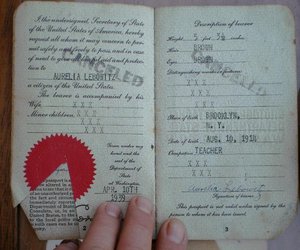 I, the undersigned, Secretary of State
of the United States of America, hereby
request all whom it may concern to per-
mit safely and freely to pass, and in case
of need to give
aid and protec-
tion to
AURELIA LEBOVITZ
a citizen of the United States.
The bearer is accompanied by his
Wife, XXX
Minor children, XXX
XXX
XXX
Given under my
hand and the
seal of the
Department of
State
at Washington,
APR. 10TH
1939
CANCELED
Description of bearer
Height 5 feet
Hair BROWN
Eyes
Distinguishing marks or features:
XXX
XXX
XXX
Place of birth BROOKLYN,
N. Y.
Date of birth AUG. 10, 1914
Occupation TEACHER
XXX
Signature of bearer.
This passport is not valid unless signed by the
person to whom it has been issued.
3